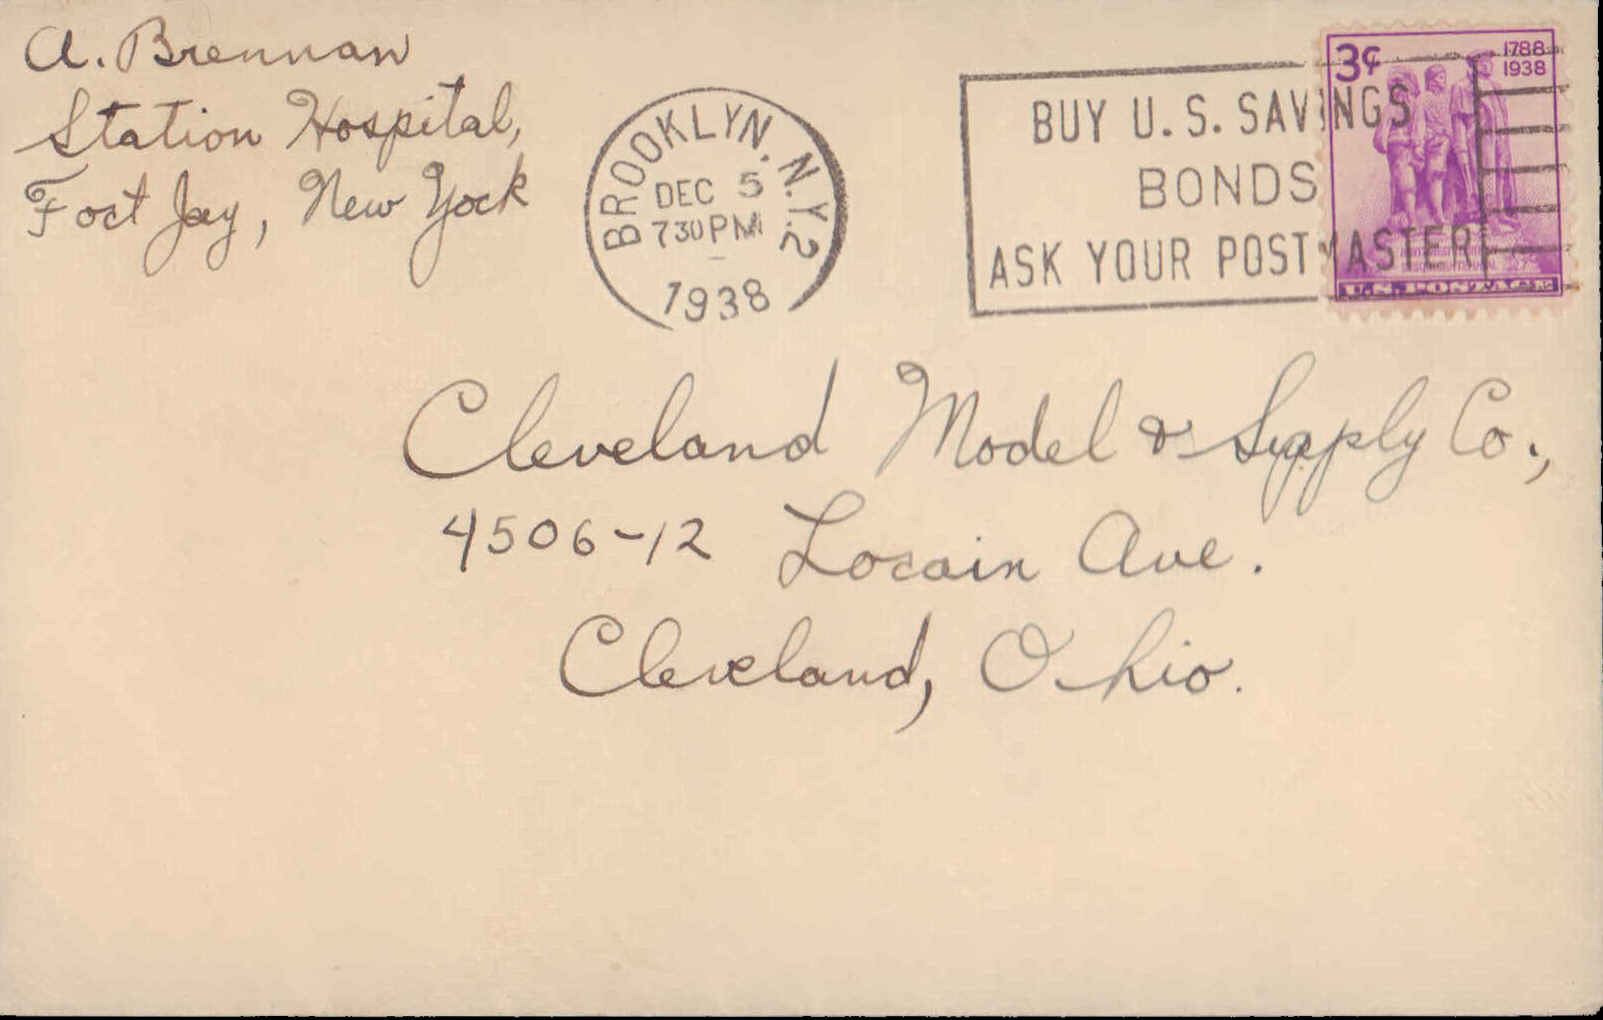 A. Brennan
Station Hospital,
Fort Jay, New York
BROOKLYN, N.Y. 2
DEC 5
730 PM
1938
BUY U.S. SAVINGS
BONDS
ASK YOUR POSTMASTER
3¢
1788
1938
U.S. POSTAGE
Cleveland Model & Supply Co.,
4506-12 Lorain Ave.
Cleveland, Ohio.